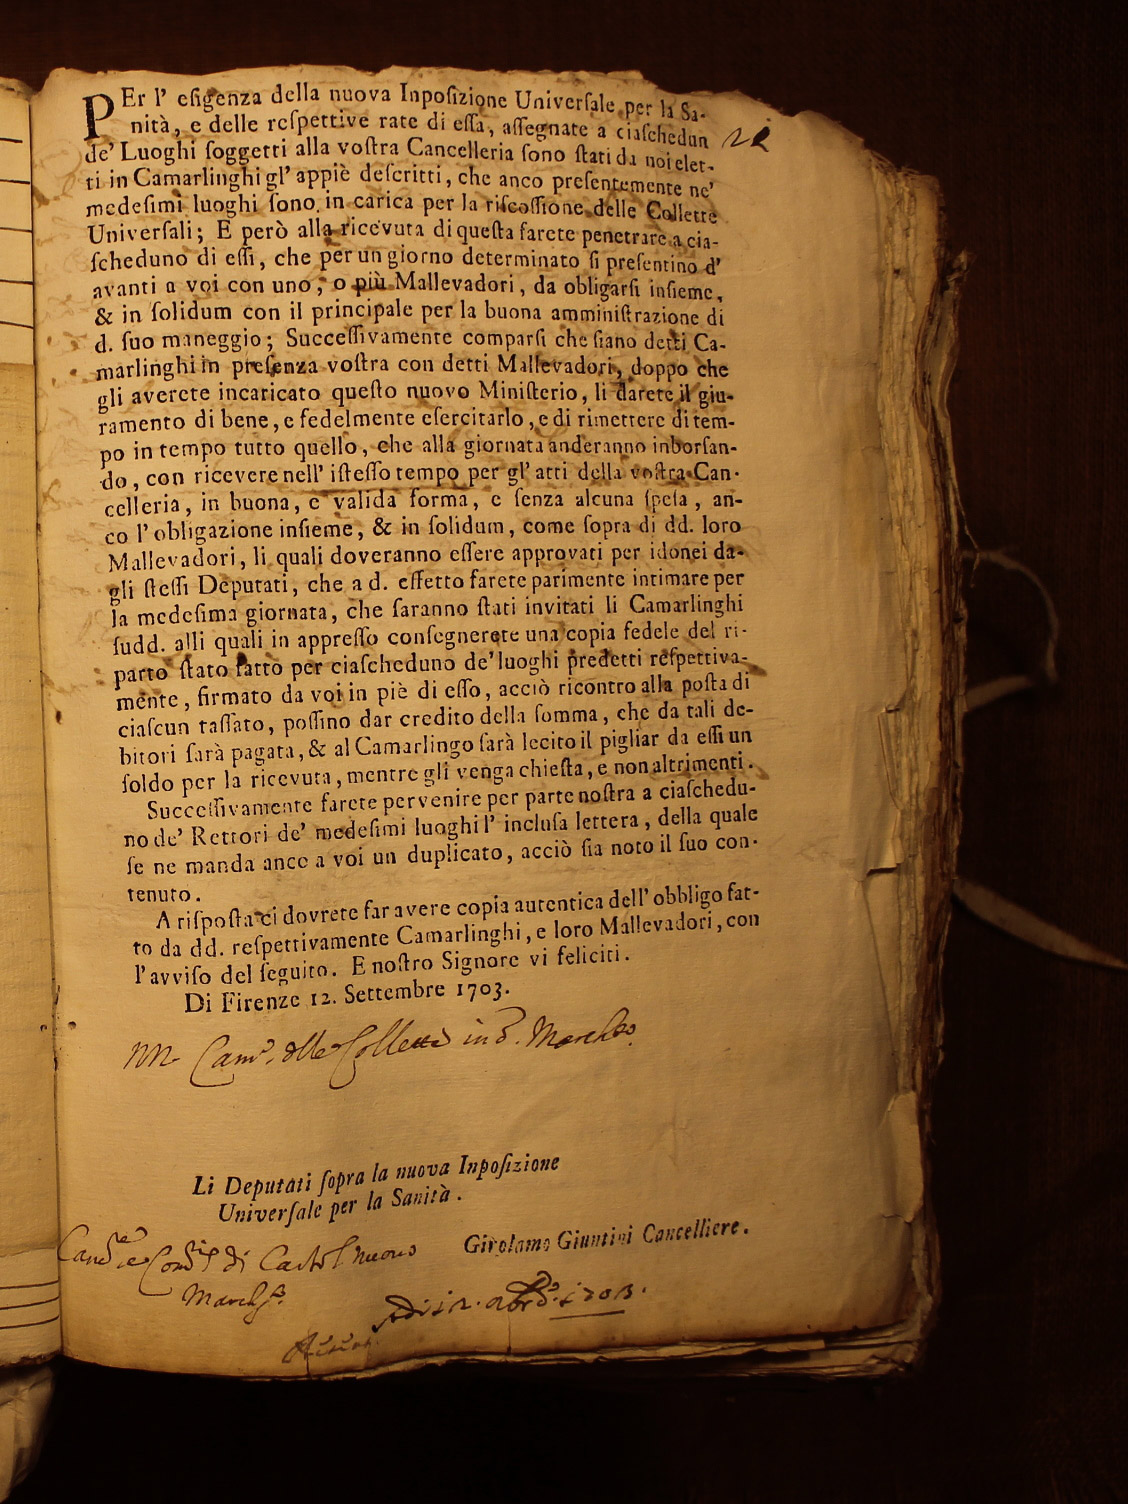 PEr l' eſigenza della nuova Inpoſizione Univerſale per la Sa-
nità, e delle reſpettive rate di eſſa, aſſegnate a ciaſchedun
de' Luoghi ſoggetti alla voſtra Cancelleria ſono ſtati da noi elet-
ti in Camarlinghi gl' appiè deſcritti, che anco preſentemente ne'
medeſimi luoghi ſono in carica per la riſcoſſione delle Collette
Univerſali; E però alla ricevuta di queſta farete penetrare a cia-
ſcheduno di eſſi, che per un giorno determinato ſi preſentino d'
avanti a voi con uno, o più Mallevadori, da obligarſi inſieme,
& in ſolidum con il principale per la buona amminiſtrazione di
d. ſuo maneggio; Succeſſivamente comparſi che ſiano detti Ca-
marlinghi in preſenza voſtra con detti Mallevadori, doppo che
gli averete incaricato queſto nuovo Miniſterio, li darete il giu-
ramento di bene, e fedelmente eſercitarlo, e di rimettere di tem-
po in tempo tutto quello, che alla giornata anderanno inborſan-
do, con ricevere nell' iſteſſo tempo per gl' atti della voſtra Can-
celleria, in buona, e valida forma, e ſenza alcuna ſpeſa, an-
co l' obligazione inſieme, & in ſolidum, come ſopra di dd. loro
Mallevadori, li quali doveranno eſſere approvati per idonei da-
gli ſteſſi Deputati, che a d. effetto farete parimente intimare per
la medeſima giornata, che ſaranno ſtati invitati li Camarlinghi
ſudd. alli quali in appreſſo conſegnerete una copia fedele del ri-
parto ſtato fatto per ciaſcheduno de' luoghi predetti reſpettiva-
mente, firmato da voi in piè di eſſo, acciò ricontro alla poſta di
ciaſcun taſſato, poſſino dar credito della ſomma, che da tali de-
bitori ſarà pagata, & al Camarlingo ſarà lecito il pigliar da eſſi un
ſoldo per la ricevuta, mentre gli venga chieſta, e non altrimenti.
Succeſſivamente farete pervenire per parte noſtra a ciaſchedu-
no de' Rettori de' medeſimi luoghi l' incluſa lettera, della quale
ſe ne manda anco a voi un duplicato, acciò ſia noto il ſuo con-
tenuto.
A riſpoſta ci dovrete far avere copia autentica dell' obbligo fat-
to da dd. reſpettivamente Camarlinghi, e loro Mallevadori, con
l' avviſo del ſeguito. E noſtro Signore vi feliciti.
Di Firenze 12. Settembre 1703.
Li Deputati ſopra la nuova Inpoſizione
Univerſale per la Sanità.
Girolamo Giuntini Cancelliere.